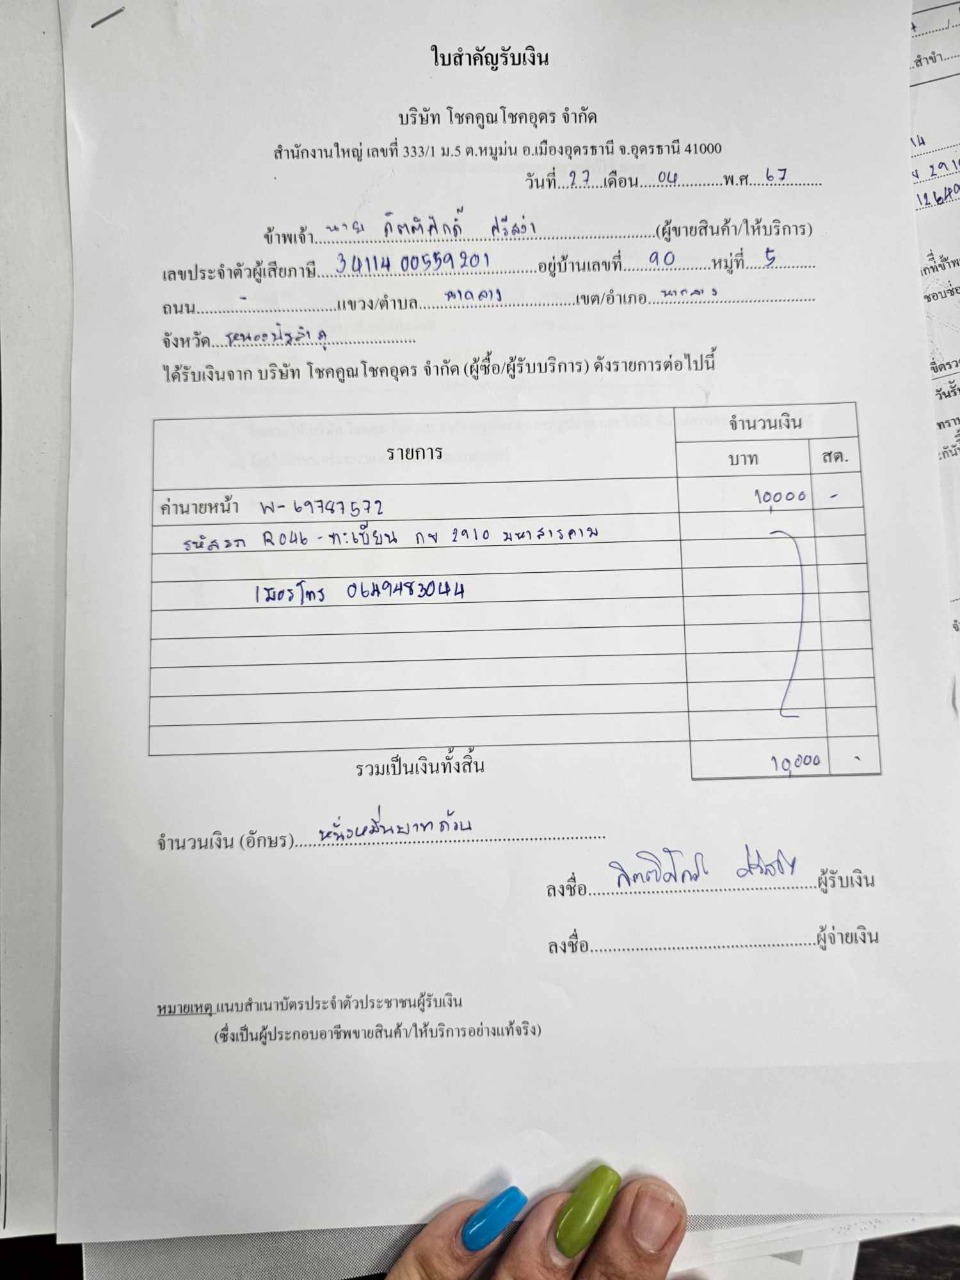 ใบสำคัญรับเงิน
บริษัท โชคคูณโชคอุดร จำกัด
สำนักงานใหญ่ เลขที่ 333/1 ม.5 ต.หมูม่น อ.เมืองอุดรธานี จ.อุดรธานี 41000
วันที่ 27 เดือน 04 พ.ศ 67
ข้าพเจ้า นาย กิตติศักดิ์ (ผู้ขายสินค้า/ให้บริการ)
เลขประจำตัวผู้เสียภาษี 3411400559201 อยู่บ้านเลขที่ 90 หมู่ที่ 5
ถนน - แขวง/ตำบล นากลาง เขต/อำเภอ นากลาง
จังหวัด หนองบัวลำภู
ได้รับเงินจาก บริษัท โชคคูณโชคอุดร จำกัด (ผู้ซื้อ/ผู้รับบริการ) ดังรายการต่อไปนี้
รายการ จำนวนเงิน
บาท สต.
ค่านายหน้า W-69787572 10,000 -
รหัสรถ R046 - ทะเบียน กข 2910 มหาสารคาม
เบอร์โทร 0649483044
รวมเป็นเงินทั้งสิ้น 10,000 -
จำนวนเงิน (อักษร) หนึ่งหมื่นบาทถ้วน
ลงชื่อ กิตติศักดิ์ ผู้รับเงิน
ลงชื่อ ผู้จ่ายเงิน
หมายเหตุ แนบสำเนาบัตรประจำตัวประชาชนผู้รับเงิน
(ซึ่งเป็นผู้ประกอบอาชีพขายสินค้า/ให้บริการอย่างแท้จริง)